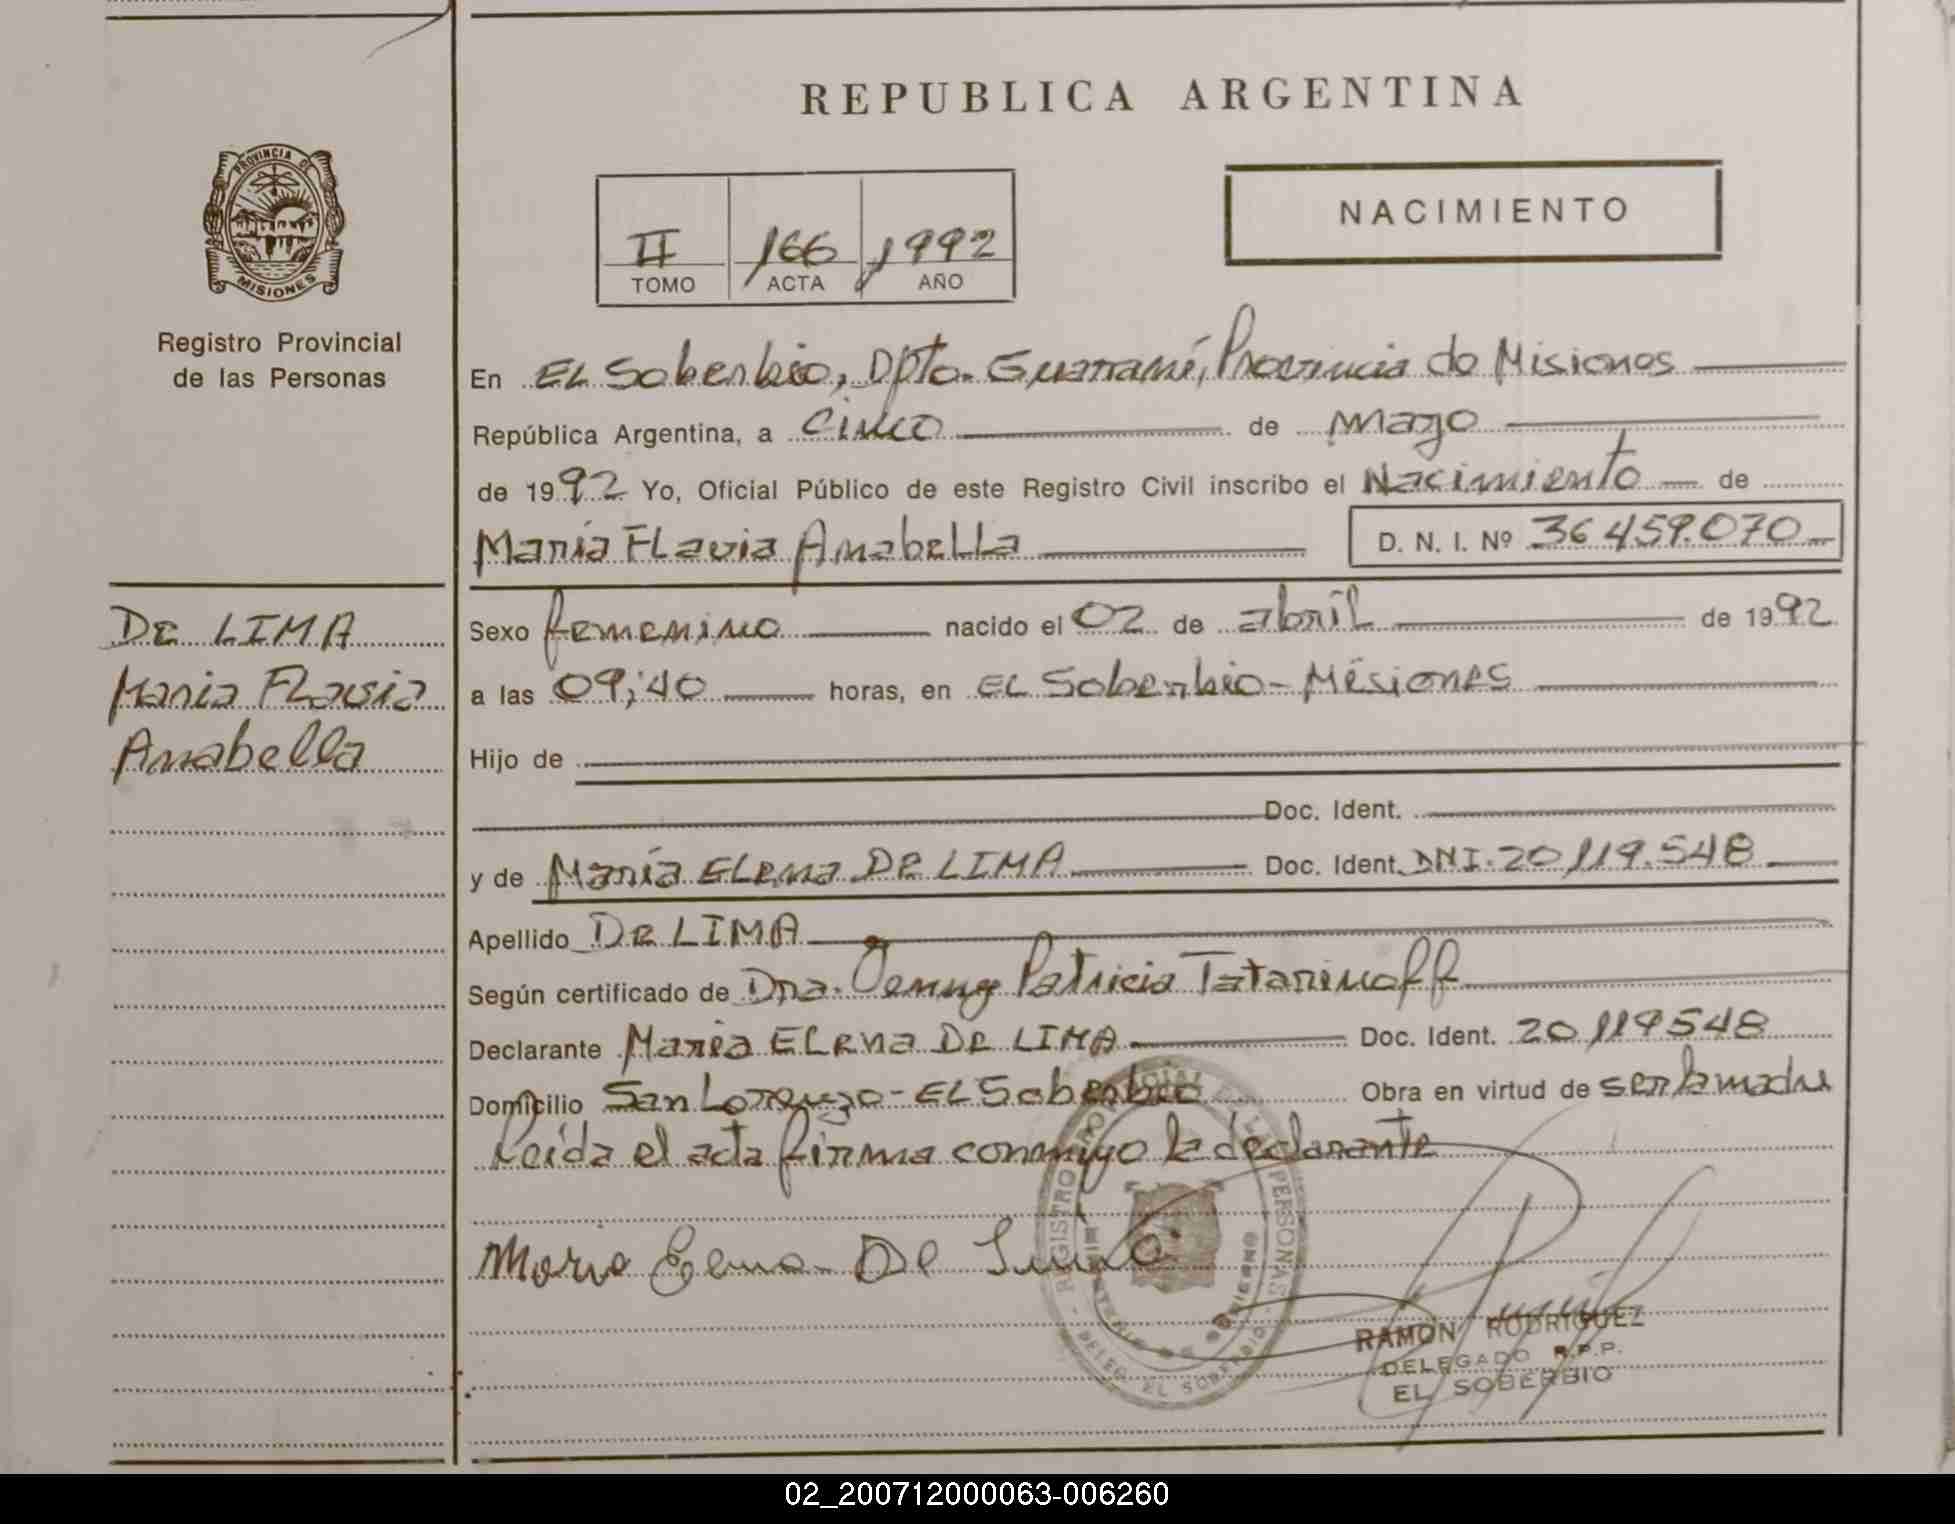 REPUBLICA ARGENTINA
PROVINCIA DE
MISIONES
Registro Provincial
de las Personas
II 166 1992
TOMO ACTA AÑO
NACIMIENTO
En EL Soberbio, Dpto. Guaraní, Provincia de Misiones
República Argentina, a cinco de mayo
de 1992 Yo, Oficial Público de este Registro Civil inscribo el Nacimiento de
María FLavia Anabella D. N. I. Nº 36459.070
DE LIMA
Maria FLavia
Anabella
Sexo femenino nacido el 02 de abril de 1992
a las 09:40 horas, en EL Soberbio - Misiones
Hijo de
Doc. Ident.
y de María ELena DE LIMA Doc. Ident. DNI. 20119.548
Apellido DE LIMA
Según certificado de Dra. Jenny Patricia Tatarinoff
Declarante María ELena DE LIMA Doc. Ident. 20119548
Domicilio San Lorenzo - EL Soberbio Obra en virtud de ser la madre
Leída el acta firma conmigo la declarante
Maria Elena De Lima
REGISTRO PROVINCIAL DE LAS PERSONAS
MINISTERIO DE GOBIERNO
DELEG. EL SOBERBIO
RAMON RODRIGUEZ
DELEGADO R.P.P.
EL SOBERBIO
02_200712000063-006260